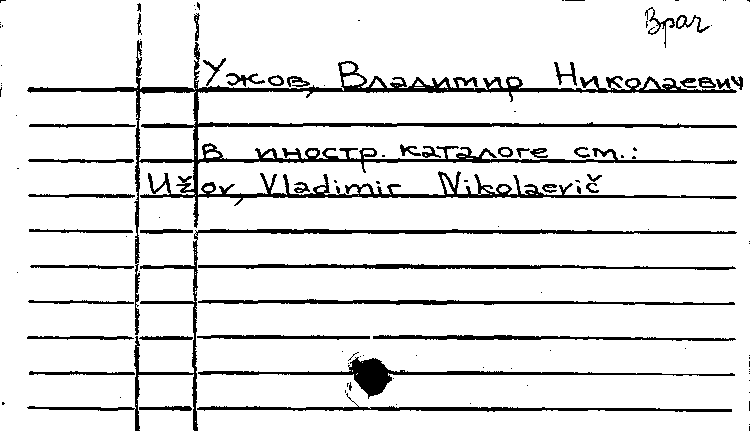 Врач
Ужов, Владимир Николаевич
В иностр. каталоге см.:
Užov, Vladimir Nikolaevič